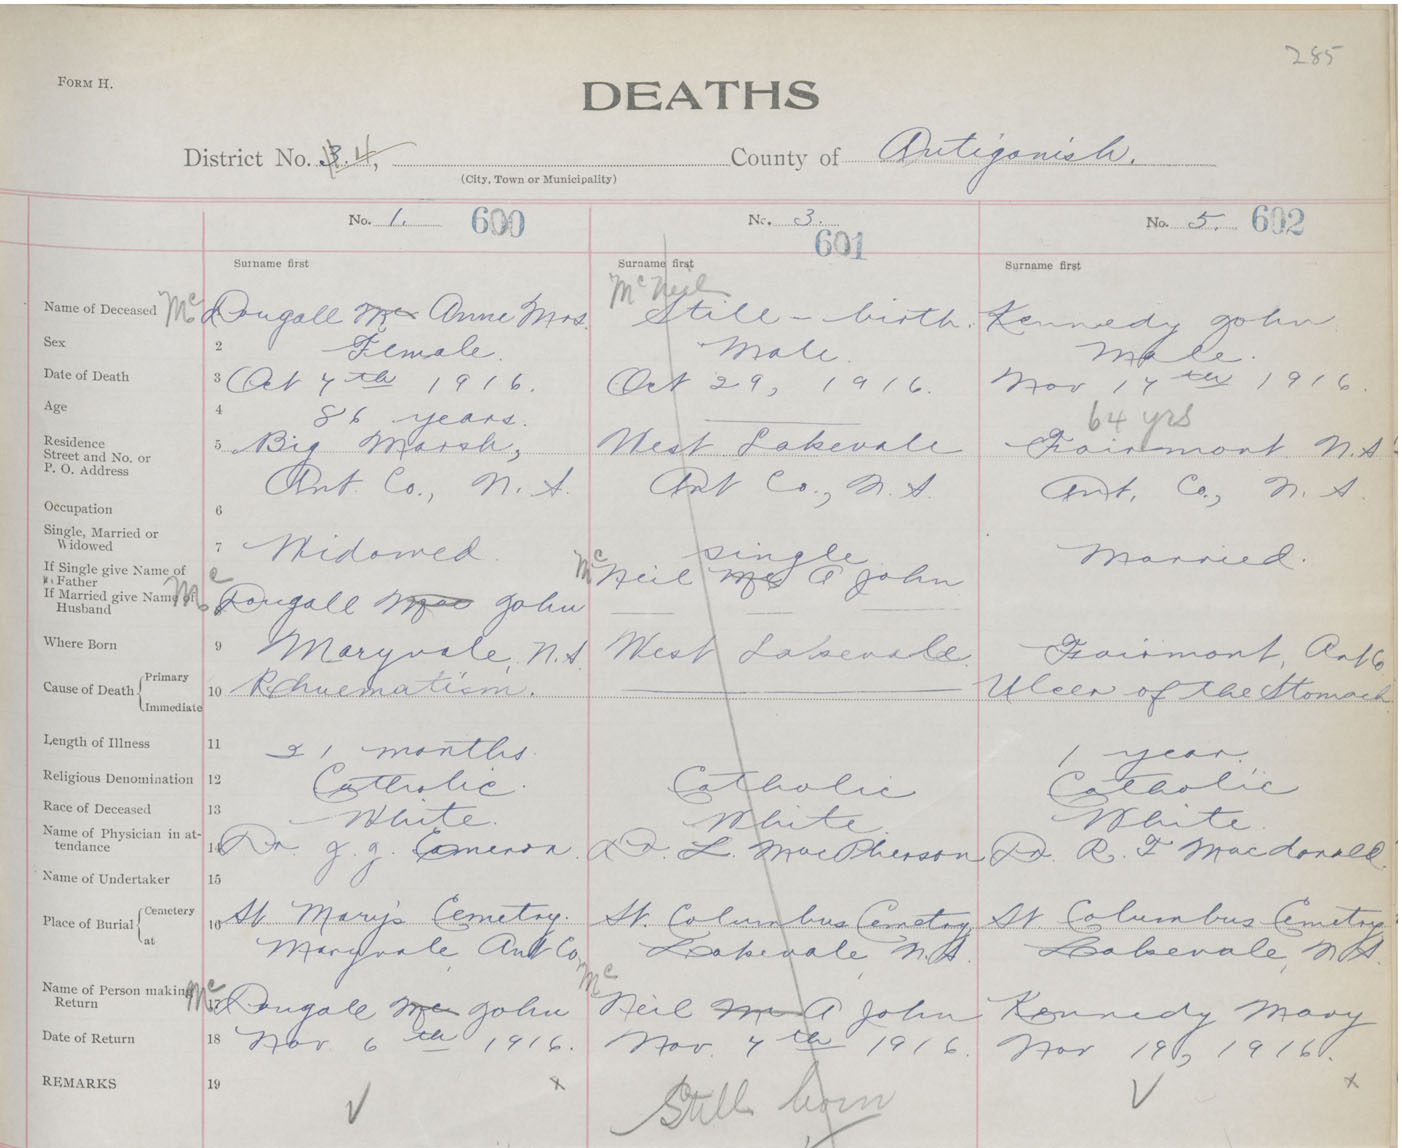 285
FORM H.
DEATHS
District No. 3.4, County of Antigonish.
(City, Town or Municipality)
No. 1. 600 No. 3. 601 No. 5. 602
Surname first Surname first Surname first
Mc Neil
Name of Deceased Mc Dougall Mc Anne Mrs. Still - birth. Kennedy John
Sex 2 Female. Male. Male.
Date of Death 3 Oct 7th 1916. Oct 29, 1916. Nov 17th 1916.
Age 4 86 years. 64 yrs
Residence 5 Big Marsh, West Lakevale Fairmont N.S.
Street and No. or
P. O. Address Ant. Co., N. S. Ant Co., N. S. Ant. Co., N. S.
Occupation 6
Single, Married or
Widowed 7 Widowed. single Married.
If Single give Name of
Father Mc Neil Mc A John
If Married give Name of
Husband Mc Dougall Mac John
Where Born 9 Maryvale, N.S. West Lakevale. Fairmont, Ant Co
Cause of Death Primary
10 Rhuematism. Ulcer of the Stomach
Immediate
Length of Illness 11 21 months. 1 year.
Religious Denomination 12 Catholic. Catholic Catholic
Race of Deceased 13 White. White. White.
Name of Physician in at-
tendance 14 Dr. J. J. Cameron. Dr. L. MacPherson Dr. R. F Macdonald.
Name of Undertaker 15
Place of Burial Cemetery 16 St. Mary's Cemetry. St. Columbus Cemetry St. Columbus Cemetry
at Maryvale Ant Co. Lakevale, N.S. Lakevale, N.S.
Name of Person making
Return 17 Mc Dougall Mc John Mc Neil Mc A John Kennedy Mary
Date of Return 18 Nov 6th 1916. Nov. 7th 1916. Nov 19, 1916.
REMARKS 19 x Still born x